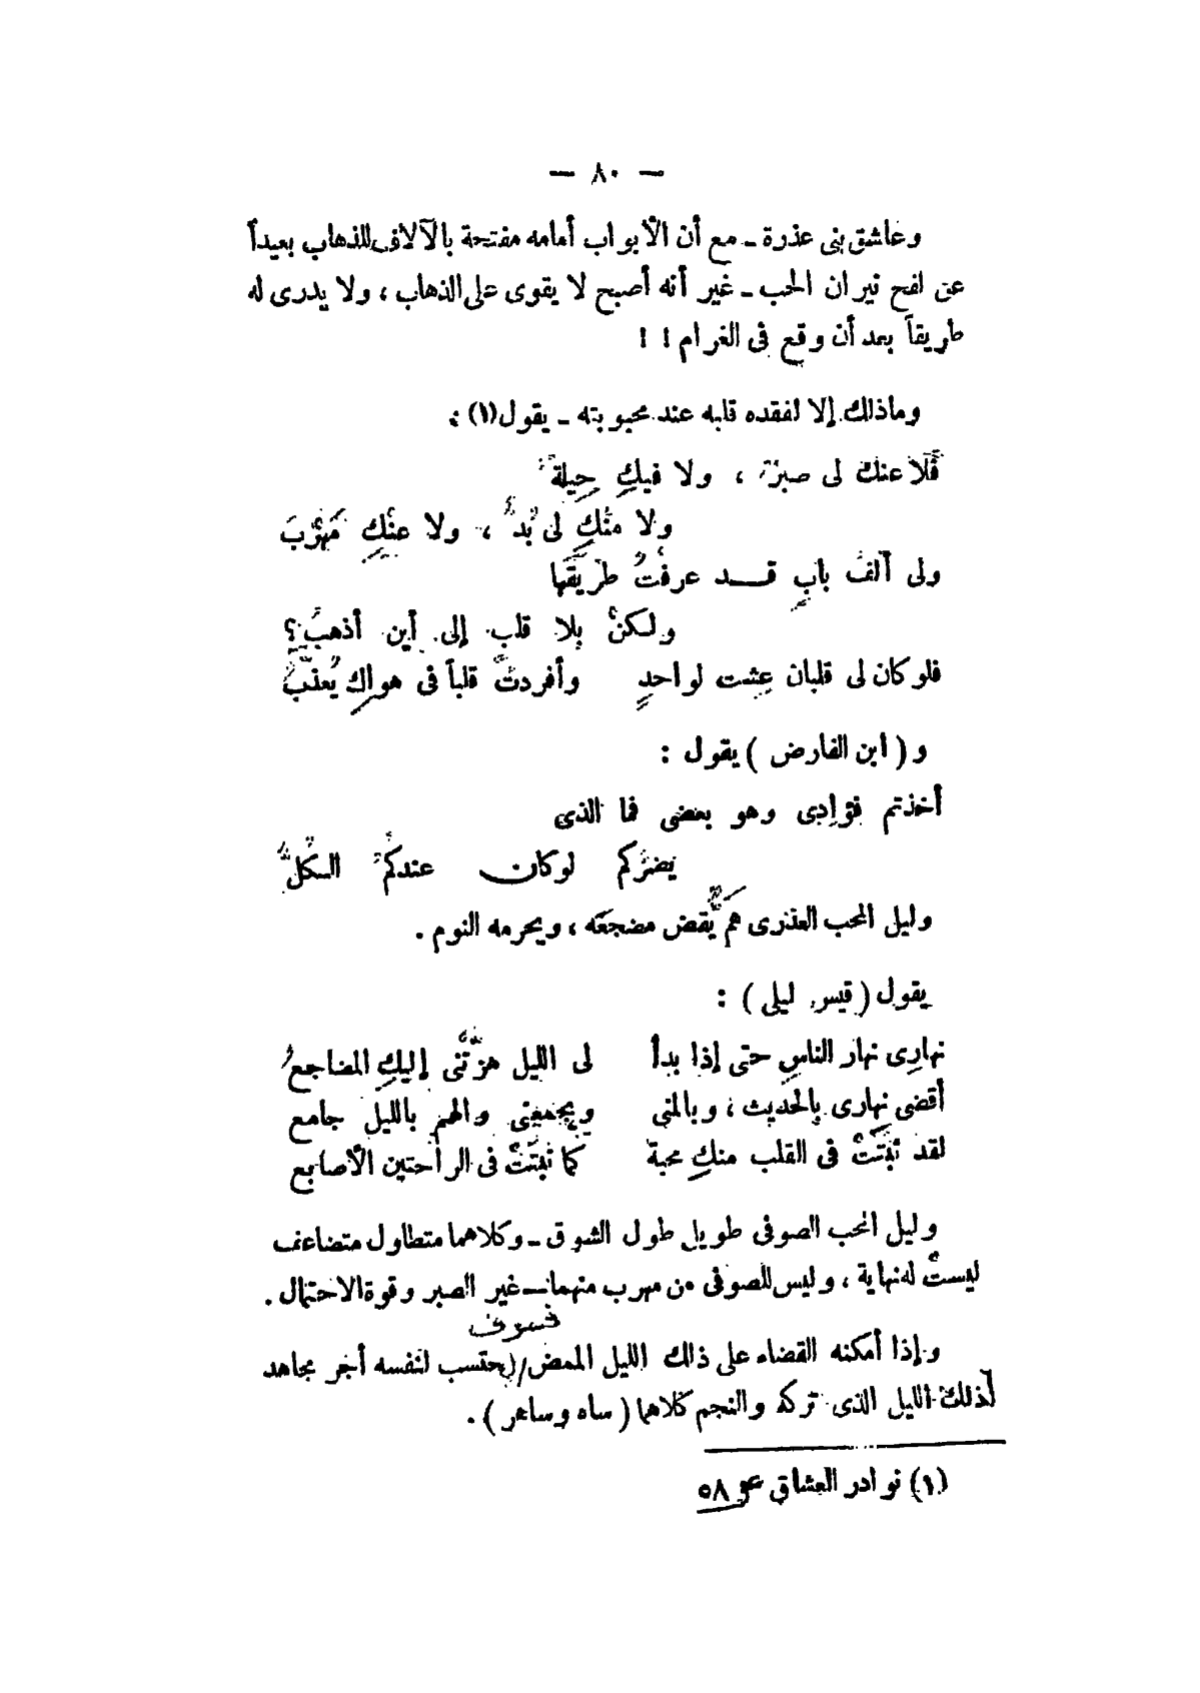 — ٨٠ —
وعاشق بنى عذرة ـ مع أن الأبواب أمامه مفتحة بالآلاف للذهاب بعيداً
عن لفح نيران الحب ـ غير أنه أصبح لا يقوى على الذهاب ، ولا يدرى له
طريقاً بعد أن وقع فى الغرام ! !
وماذلك إلا لفقده قلبه عند محبوبته ـ يقول (١) :
فَلَا عنك لى صبرٌ ، ولا فيكِ حِيلةٌ
ولا منْكِ لى بُدٌّ ، ولا عنْكِ مَهْرَبُ
ولى ألفُ بابٍ قد عرفْتُ طريقَها
ولكنْ بِلا قلبٍ إلى أين أذهبُ ؟
فلو كان لى قلبان عِشت لواحدٍ وأفردتُ قلباً فى هواكِ يُعذَّبُ
و ( ابن الفارض ) يقول :
أخذتم فؤادِى وهو بعضى فما الذى
يضرُّكم لو كان عندكمُ الكلُّ
وليل المحب العذرى هَمٌّ يُقض مضجَعَه ، ويحرمه النوم .
يقول ( قيس ليلى ) :
نهارِى نهار الناسِ حتى إذا بدأ لى الليل هزَّتْنى إليكِ المضاجعُ
أقضى نهارى بالحديث ، وبالمنى ويجمعنى والهم بالليل جامع
لقد ثبَتَتْ فى القلب منكِ محبة كما ثبَتَتْ فى الراحتين الأصابع
وليل المحب الصوفى طويل طول الشوق ـ وكلاهما متطاول متضاعف
ليستْ له نهاية ، وليس للصوفى من مهرب منهما ـ غير الصبر وقوة الاحتمال .
فسوف
وإذا أمكنه القضاء على ذلك الليل الممض / يحتسب لنفسه أجر مجاهد
لذلك الليل الذى تركه والنجم كلاهما ( ساه وساهر ) .
(١) نوادر العشاق ص ٥٨